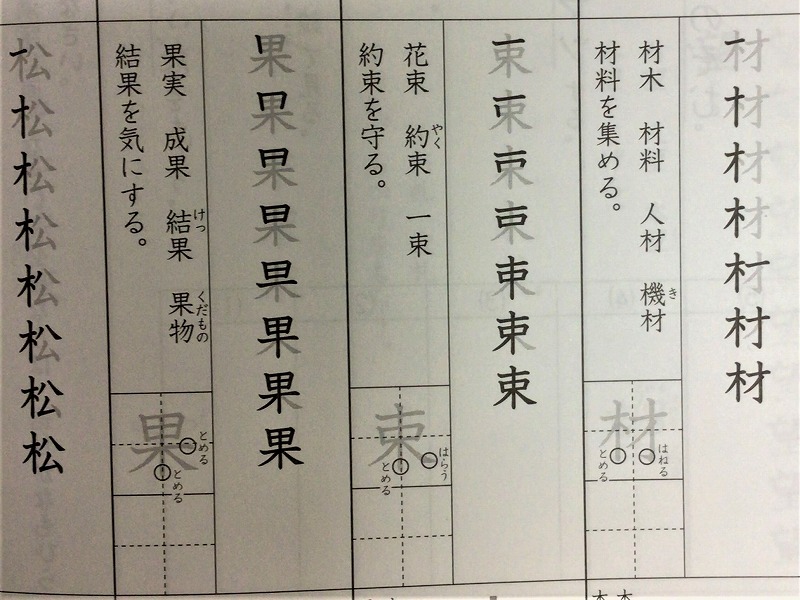 材材材材材材材
材木　材料　人材　機材
き
材料を集める。
材
はねる
とめる
束束束束束束束
花束　約束　一束
やく
約束を守る。
束
はらう
とめる
果果果果果果果果
果実　成果　結果　果物
けっ
くだもの
結果を気にする。
果
とめる
とめる
松松松松松松松松